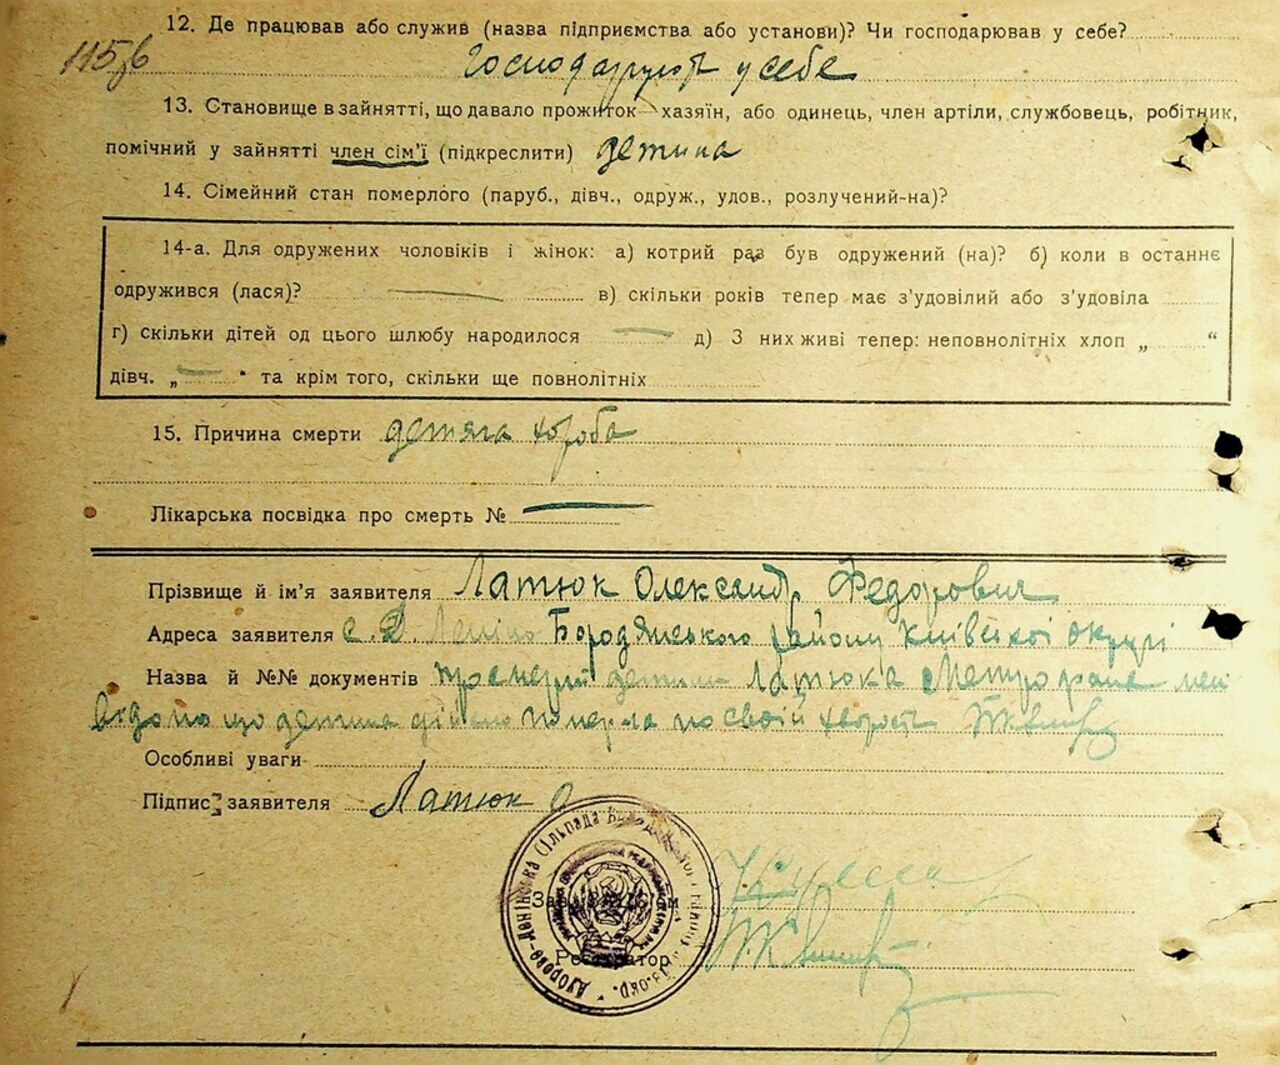 115 зв
12. Де працював або служив (назва підприємства або установи)? Чи господарював у себе?
Господарують у себе
13. Становище в зайнятті, що давало прожиток—хазяїн, або одинець, член артіли, службовець, робітник,
помічний у зайнятті член сім'ї (підкреслити) детина
14. Сімейний стан померлого (паруб., дівч., одруж., удов., розлучений-на)?
14-а. Для одружених чоловіків і жінок: а) котрий раз був одружений (на)? б) коли в останнє
одружився (лася)? — в) скільки років тепер має з'удовілий або з'удовіла
г) скільки дітей од цього шлюбу народилося — д) З них живі тепер: неповнолітніх хлоп „ “
дівч. „ — “ та крім того, скільки ще повнолітніх
15. Причина смерти детяга хороба
Лікарська посвідка про смерть № —
Прізвище й ім'я заявителя Латюк Олександр Федорович
Адреса заявителя с. Д. Бородянського району Київської округі
Назва й №№ документів про смерть детини Латюка Метрофана мені
відомо що детина дійсно померла по своїй хворості
Особливі уваги
Підпис заявителя Латюк О
Дворово-Ленінська Сільрада
Зав. ЗАГС'ом
Реєстратор